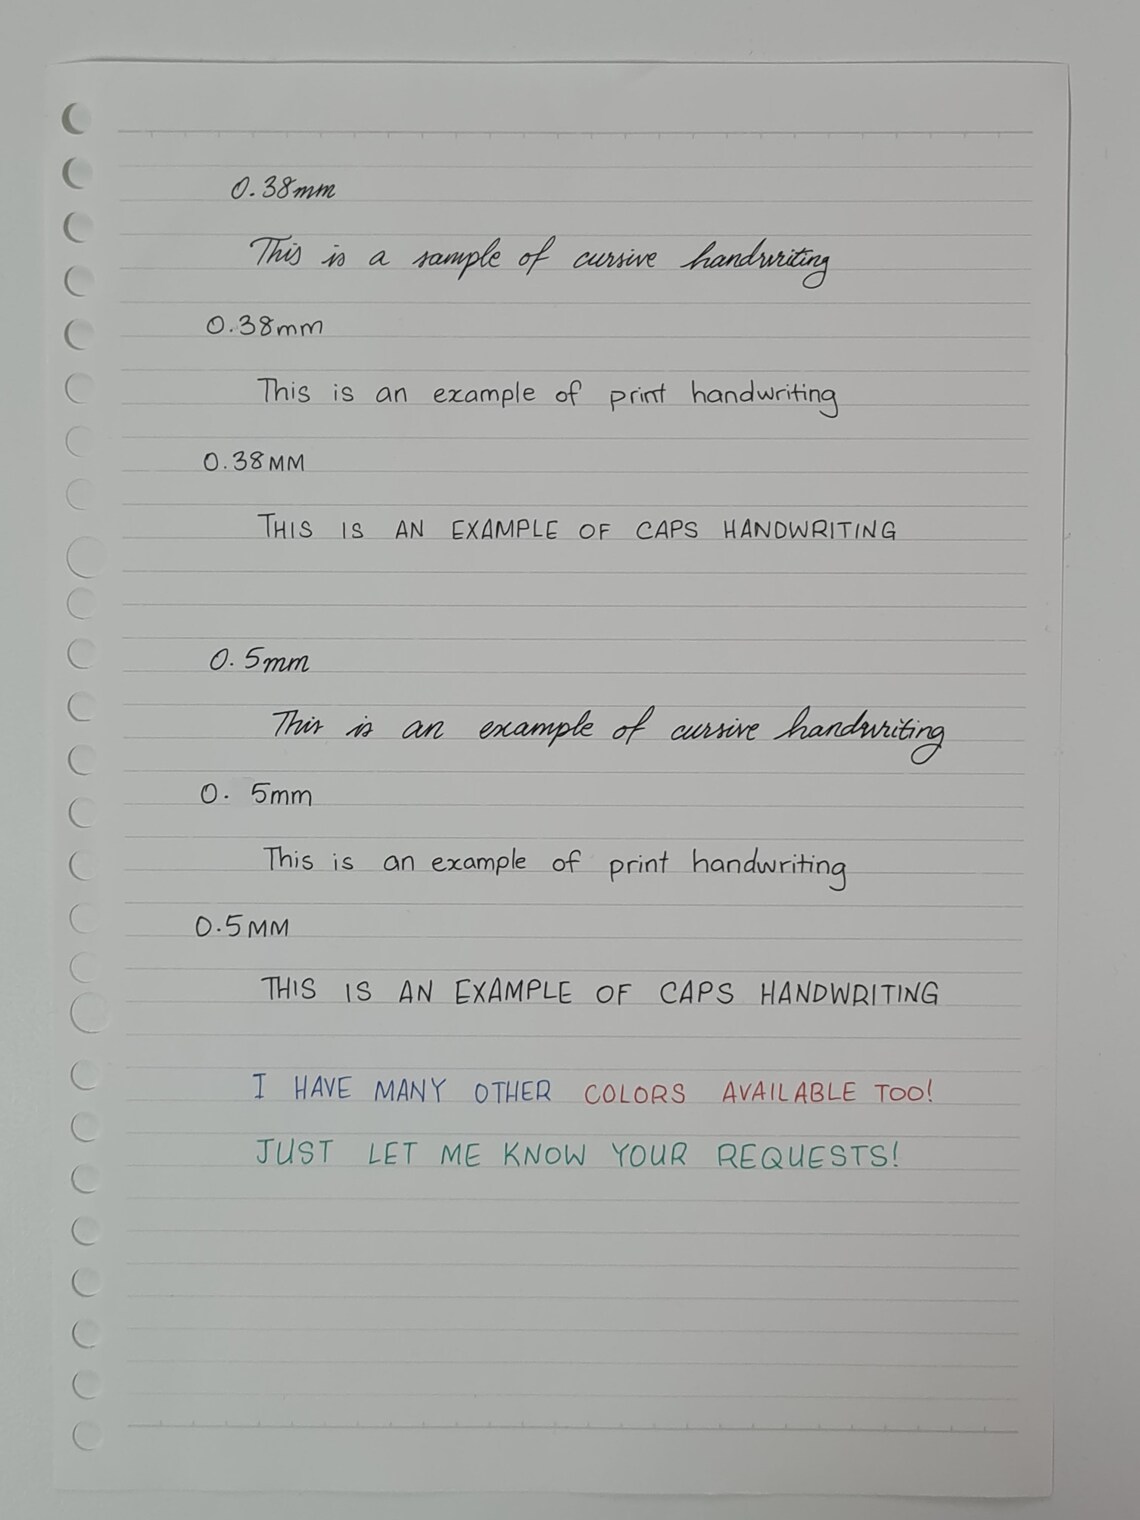 0.38mm
This is a sample of cursive handwriting
0.38mm
This is an example of print handwriting
0.38MM
THIS IS AN EXAMPLE OF CAPS HANDWRITING
0.5mm
This is an example of cursive handwriting
0. 5mm
This is an example of print handwriting
0.5MM
THIS IS AN EXAMPLE OF CAPS HANDWRITING
I HAVE MANY OTHER COLORS AVAILABLE TOO!
JUST LET ME KNOW YOUR REQUESTS!